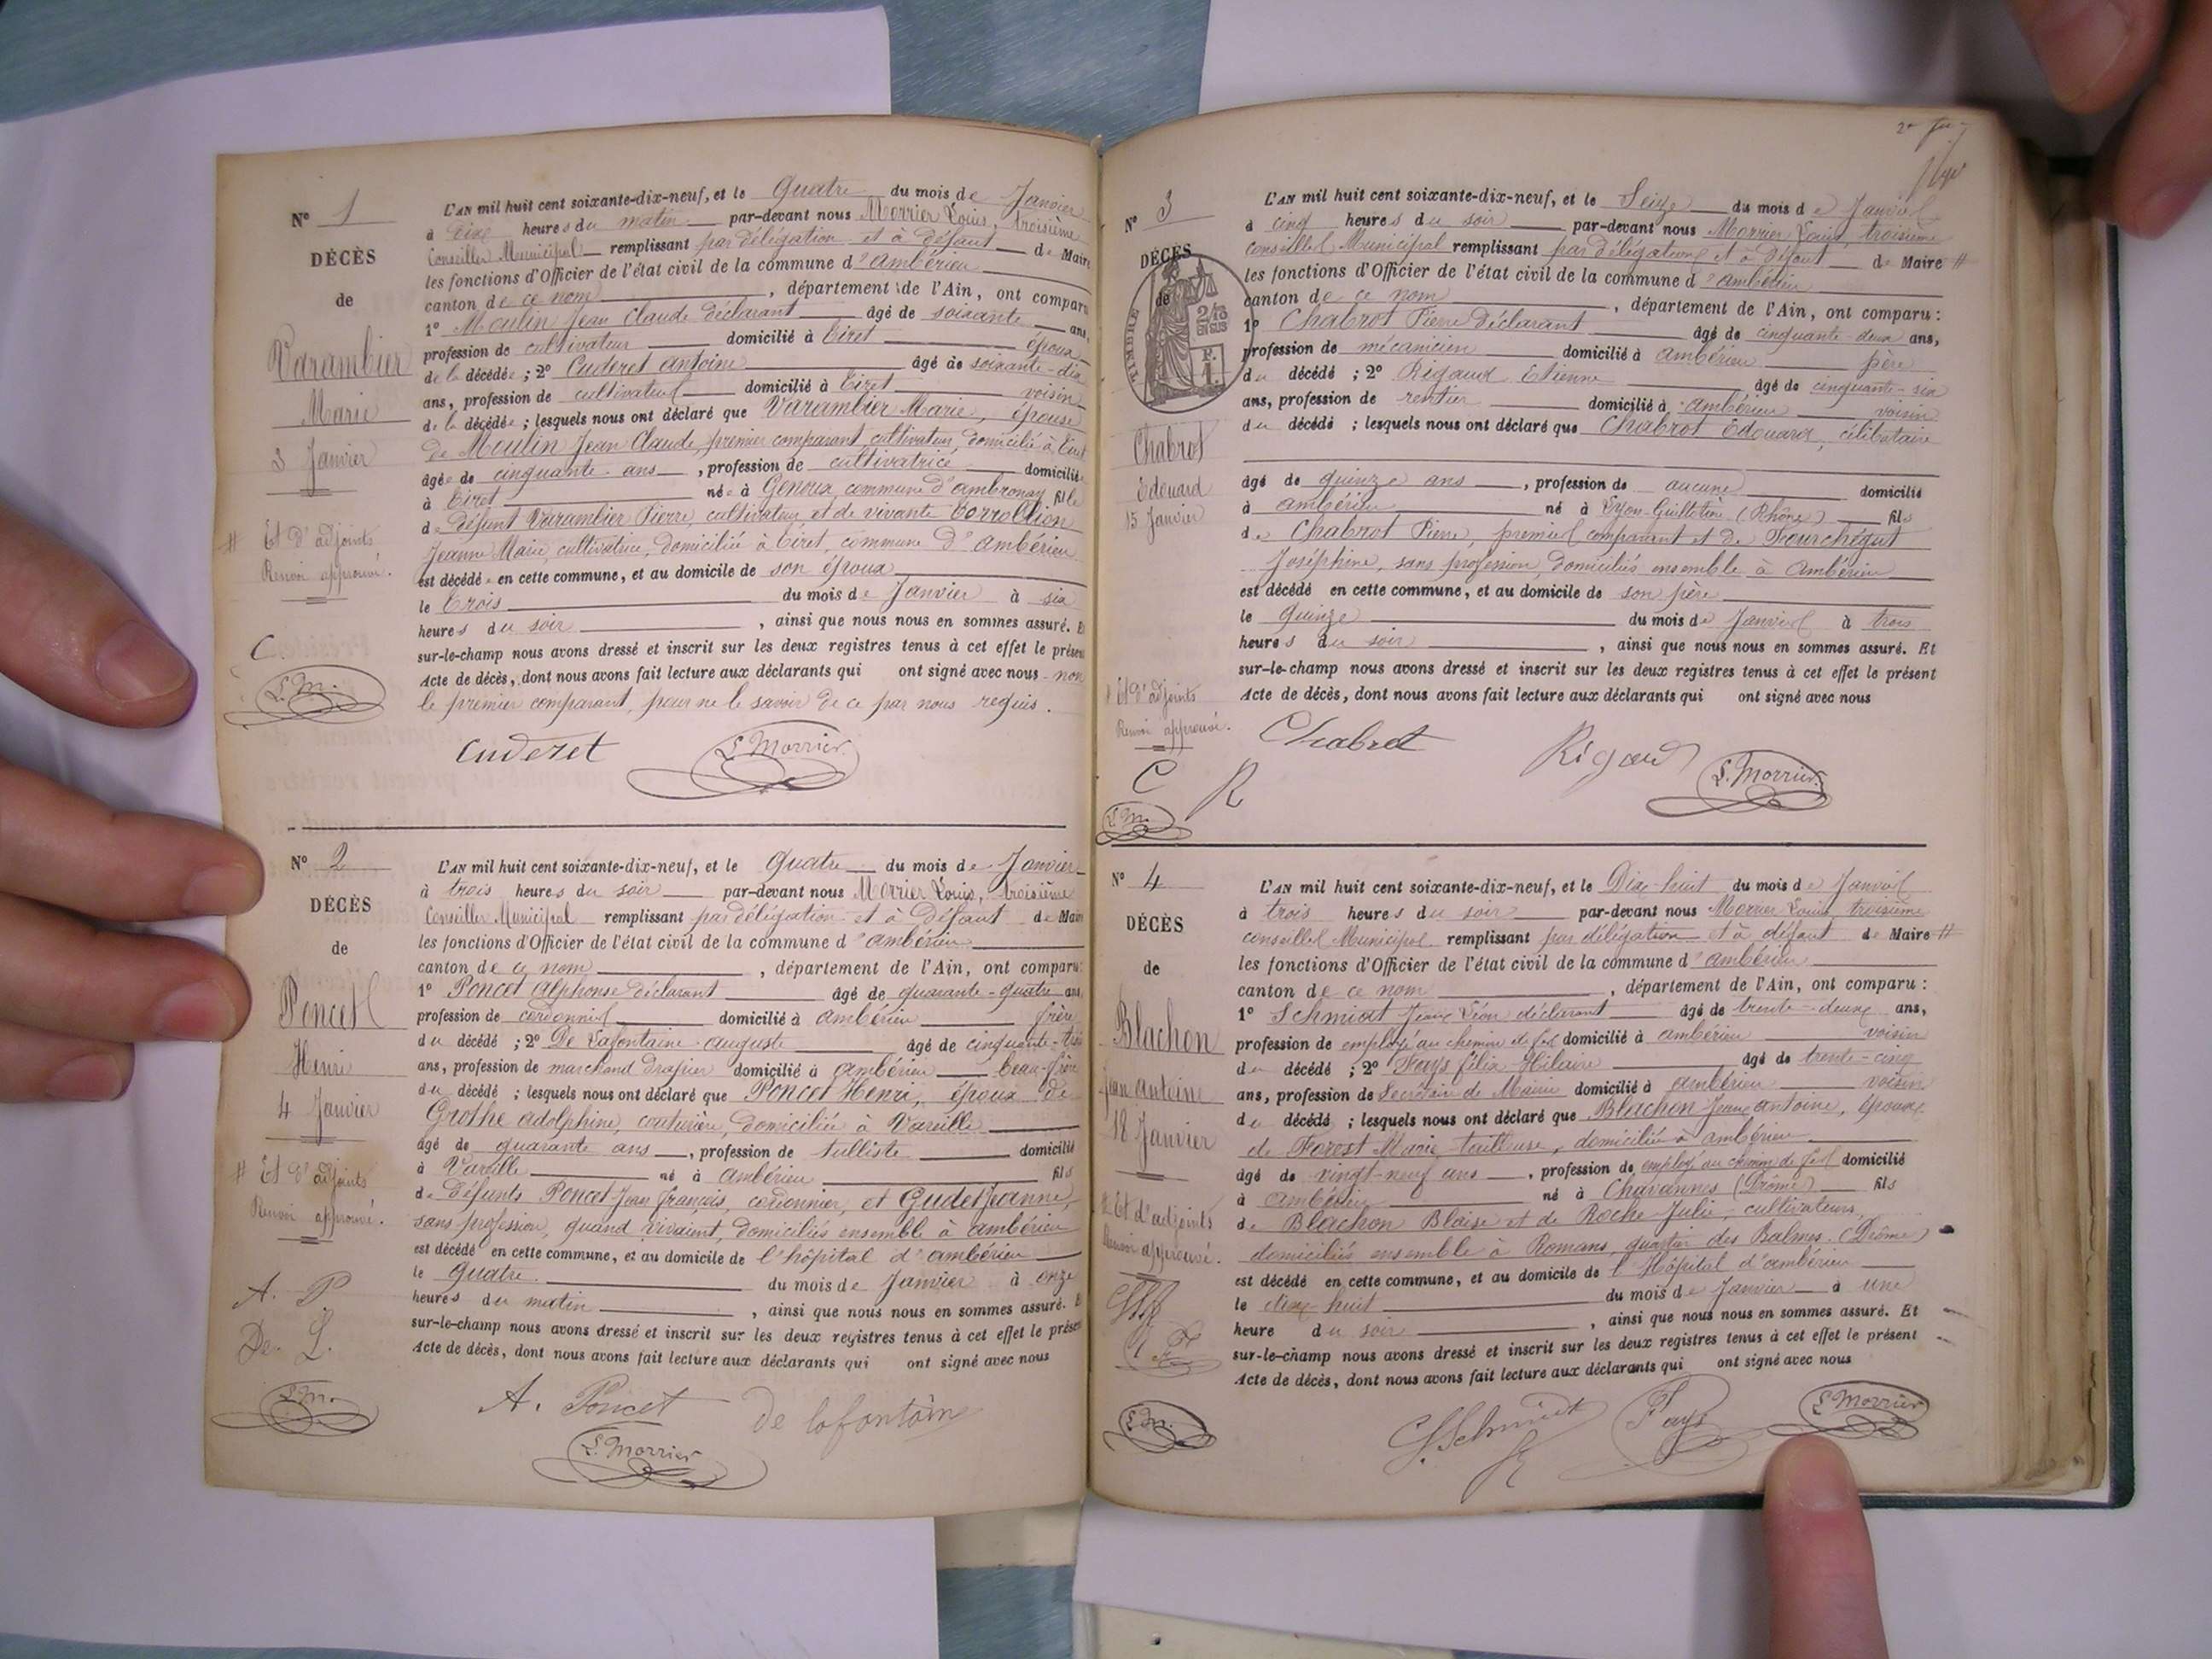 N° 1
DÉCÈS
de
Varambier
Marie
3 Janvier
# Et d'adjoints
Renvoi approuvé.
C.
L. M.
L'AN mil huit cent soixante-dix-neuf, et le Quatre du mois de Janvier
à Dix heures du matin par-devant nous Morrier Louis, troisième
Conseiller Municipal remplissant par délégation et à défaut de Maire
les fonctions d'Officier de l'état civil de la commune d'Ambérieu
canton de ce nom, département de l'Ain, ont comparu
1° Moulin Jean Claude déclarant âgé de soixante ans,
profession de cultivateur domicilié à Tiret époux
de la décédée; 2° Cuderet Antoine âgé de soixante-dix
ans, profession de cultivateur domicilié à Tiret voisin
de la décédée; lesquels nous ont déclaré que Varambier Marie, épouse
de Moulin Jean Claude, premier comparant, cultivateur, domicilié à Tiret
âgée de cinquante ans, profession de cultivatrice domiciliée
à Tiret née à Genoux, commune d'Ambronay fille
de défunt Varambier Pierre, cultivateur et de vivante
Jeanne Marie, cultivatrice, domiciliée à Tiret, commune d'Ambérieu
est décédée en cette commune, et au domicile de son époux
le Trois du mois de Janvier à six
heures du soir, ainsi que nous nous en sommes assuré. E
sur-le-champ nous avons dressé et inscrit sur les deux registres tenus à cet effet le présen
Acte de décès, dont nous avons fait lecture aux déclarants qui ont signé avec nous non
le premier comparant, pour ne le savoir de ce par nous requis.
Cuderet L. Morrier
N° 2
DÉCÈS
de
Poncet
Henri
4 Janvier
# Et d'adjoints
Renvoi approuvé.
A. P
De. L.
L. M.
L'AN mil huit cent soixante-dix-neuf, et le Quatre du mois de Janvier
à trois heures du soir par-devant nous Morrier Louis, troisième
Conseiller Municipal remplissant par délégation et à défaut de Maire
les fonctions d'Officier de l'état civil de la commune d'Ambérieu
canton de ce nom, département de l'Ain, ont comparu:
1° Poncet Alphonse déclarant âgé de quarante-quatre ans,
profession de cordonnier domicilié à Ambérieu frère
du décédé; 2° De Lafontaine Auguste âgé de cinquante-trois
ans, profession de marchand drapier domicilié à Ambérieu beau-frère
du décédé; lesquels nous ont déclaré que Poncet Henri, époux de
Grothe Adolphine, couturière, domiciliée à Vareille
âgé de quarante ans, profession de tulliste domicilié
à Vareille né à Ambérieu fils
de défunts Poncet Jean François, cordonnier, et Gudet Jeanne,
sans profession, quand vivaient, domiciliés ensemble à Ambérieu
est décédé en cette commune, et au domicile de l'hôpital d'Ambérieu
le Quatre du mois de Janvier à onze
heures du matin, ainsi que nous nous en sommes assuré. E
sur-le-champ nous avons dressé et inscrit sur les deux registres tenus à cet effet le présen
Acte de décès, dont nous avons fait lecture aux déclarants qui ont signé avec nous
A. Poncet De lafontaine
L. Morrier
N° 3
DÉCÈS
de
TIMBRE
2/10
EN SUS
F.
1.
Chabrot
Edouard
15 Janvier
# Et d'adjoints
Renvoi approuvé.
C R
L. M.
L'AN mil huit cent soixante-dix-neuf, et le Seize du mois de Janvier
à cinq heures du soir par-devant nous Morrier Louis, troisième
conseiller Municipal remplissant par délégation et à défaut de Maire #
les fonctions d'Officier de l'état civil de la commune d'Ambérieu
canton de ce nom, département de l'Ain, ont comparu:
1° Chabrot Pierre Déclarant âgé de cinquante-deux ans,
profession de mécanicien domicilié à Ambérieu père
du décédé; 2° Rigaud Etienne âgé de cinquante-six
ans, profession de rentier domicilié à Ambérieu voisin
du décédé; lesquels nous ont déclaré que Chabrot Edouard, célibataire
âgé de quinze ans, profession de aucune domicilié
à Ambérieu né à Lyon-Guillotière (Rhône) fils
de Chabrot Pierre, premier comparant et de Fourchégut
Joséphine, sans profession, domiciliés ensemble à Ambérieu
est décédé en cette commune, et au domicile de son père
le quinze du mois de Janvier à trois
heures du soir, ainsi que nous nous en sommes assuré. Et
sur-le-champ nous avons dressé et inscrit sur les deux registres tenus à cet effet le présent
Acte de décès, dont nous avons fait lecture aux déclarants qui ont signé avec nous
Chabrot Rigaud L. Morrier
N° 4
DÉCÈS
de
Blachon
Jean Antoine
18 Janvier
# Et d'adjoints
Renvoi approuvé.
L. M.
L'AN mil huit cent soixante-dix-neuf, et le Dix-huit du mois de Janvier
à trois heures du soir par-devant nous Morrier Louis, troisième
conseiller Municipal remplissant par délégation et à défaut de Maire #
les fonctions d'Officier de l'état civil de la commune d'Ambérieu
canton de ce nom, département de l'Ain, ont comparu:
1° Schmidt Jean Léon déclarant âgé de trente-deux ans,
profession de employé au chemin de fer domicilié à Ambérieu voisin
du décédé; 2° Fays Félix Hilaire âgé de trente-cinq
ans, profession de Secrétaire de Mairie domicilié à Ambérieu voisin
du décédé; lesquels nous ont déclaré que Blachon Jean Antoine, époux
de Forest Marie tailleuse, domiciliée à Ambérieu
âgé de vingt-neuf ans, profession de employé au chemin de fer domicilié
à Ambérieu né à Chavannes (Drôme) fils
de Blachon Blaise et de Roche Julie, cultivateurs,
domiciliés ensemble à Romans, quartier des Balmes (Drôme)
est décédé en cette commune, et au domicile de l'Hôpital d'Ambérieu
le dix-huit du mois de Janvier à une
heure du soir, ainsi que nous nous en sommes assuré. Et
sur-le-champ nous avons dressé et inscrit sur les deux registres tenus à cet effet le présent
Acte de décès, dont nous avons fait lecture aux déclarants qui ont signé avec nous
Schmidt Fays L. Morrier